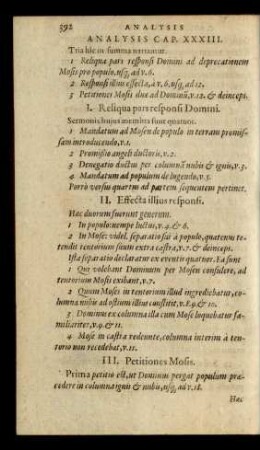 592 ANALYSIS
ANALYSIS CAP. XXXIII.
Tria hîc in summa versantur.
1 Reliqua pars responsi Domini ad deprecationem
Mosis pro populo, usq; ad v.6.
2 Responsi illius effecta, à v.6, usq; ad 12.
3 Petitiones Mosis dua ad Dominū, v.12. & deinceps.
I. Reliqua pars responsi Domini.
Sermonis hujus membra sunt quatuor.
1 Mandatum ad Mosen de populo in terram promis-
sam introducendo, v.1.
2 Promissio angeli ductoris, v.2.
3 Denegatio ductus per columnā nubis & ignis, v.3.
4 Mandatum ad populum de lugendo, v.5.
Porrò versus quartus ad partem sequutem pertinet.
II. Effecta illius responsi.
Hac duorum fuerunt generum.
1 In populo: nempe luctus, v.4. & 6.
2 In Mose: videl. separatio sui à populo, quatenus te-
tendit tentorium suum extra castra, v.7. & deinceps.
Ista separatio declaratur ex eventis quatuor. Ea sunt
1 Qui volebant Dominum per Mosen consulere, ad
tentorium Mosis exibant, v.7.
2 Quum Moses in tentorium illud ingrediebatur, co-
lumna nubis ad ostium illius constitit, v.8.9. & 10.
3 Dominus ex columna illa cum Mose loquebatur fa-
miliariter, v.9. & 11.
4 Mose in castra redeunte, columna interim à ten-
torio non recedebat, v.11.
III. Petitiones Mosis.
Prima petitio est, ut Dominus pergat populum præ-
cedere in columna ignis & nubis, usq; ad v.18.
Hac